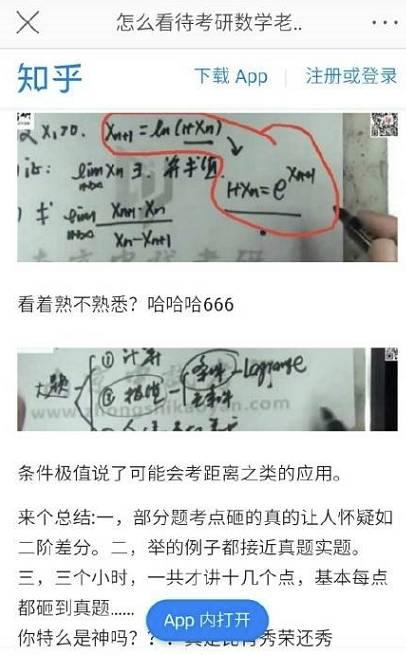 怎么看待考研数学老..
知乎
下载 App
注册或登录
X₁>0. Xn+1 = ln(1+Xn)
证: lim Xn ∃. 并求值
n→∞
1+Xn = e^Xn+1
求 lim Xn+1·Xn / Xn-Xn+1
n→∞
看着熟不熟悉？哈哈哈666
① 计算
大题
② 极值 条件 - Lagrange
无条件
条件极值说了可能会考距离之类的应用。
来个总结:一，部分题考点砸的真的让人怀疑如
二阶差分。二，举的例子都接近真题实题。
三，三个小时，一共才讲十几个点，基本每点
都砸到真题……
App 内打开
你特么是神吗？？